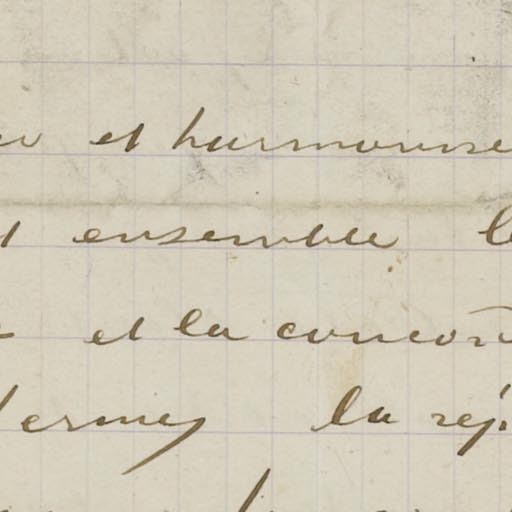 et harmonise
ensemble le
et la concor
termes la rép